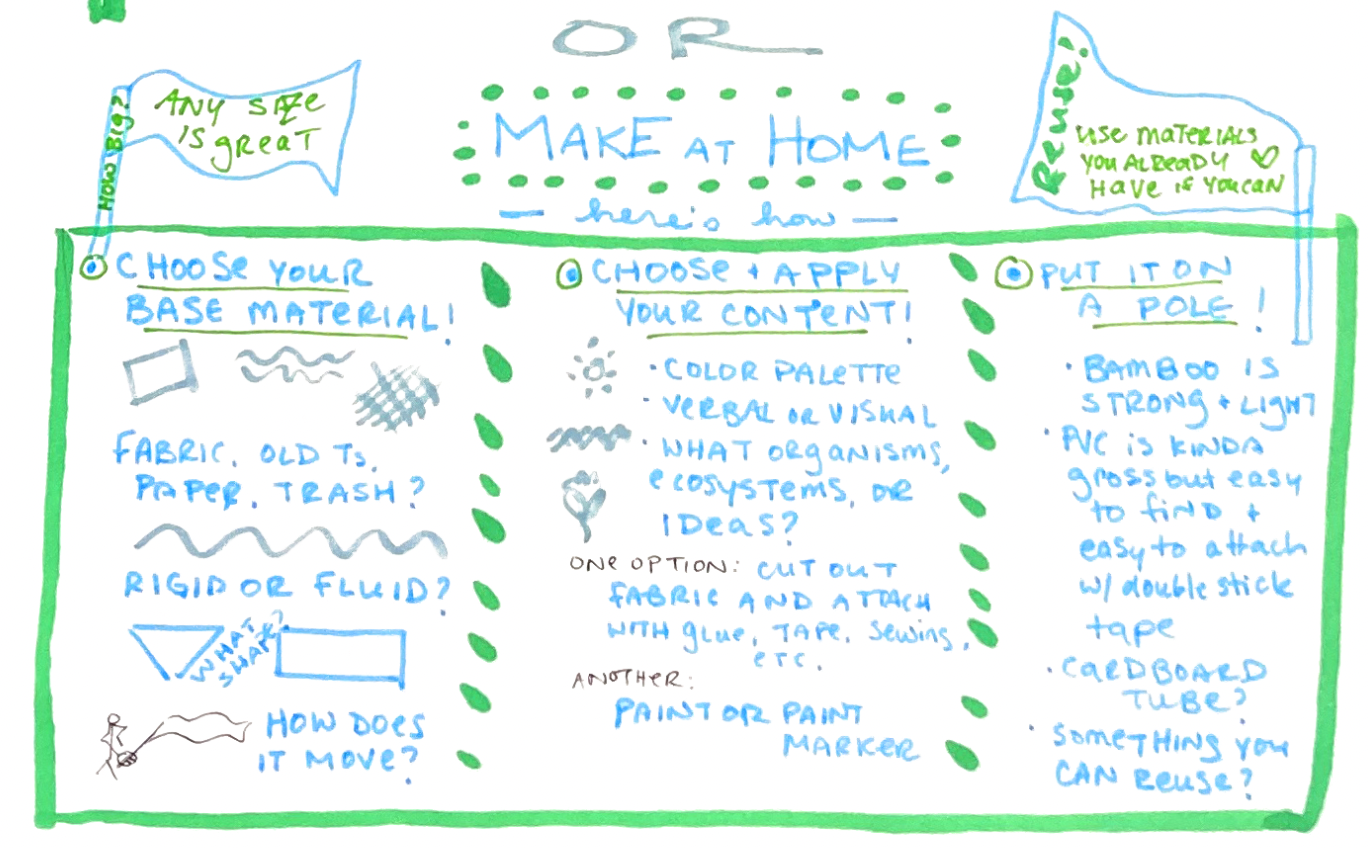 OR
HOW BIG?
ANY SIZE
IS greaT
MAKE AT HOME
— here's how —
Reuse!
use MATERIALS
YOU ALReADY
HAVe if YOU CAN
CHOOSE YOUR
BASE MATERIAL!
FABRIC, OLD Ts,
PAPER, TRASH?
RIGID OR FLUID?
WHAT
SHAPE?
HOW DOES
IT MOVE?
CHOOSE + APPLY
YOUR CONTENT!
• COLOR PALETTE
• VERBAL OR VISUAL
• WHAT Organisms,
ecosystems, OR
IDeas?
ONE OPTION: CUT OUT
FABRIC AND ATTACH
WITH glue, TAPE, Sewing,
eTC.
ANOTHER:
PAINT OR PAINT
MARKER
PUT IT ON
A POLE!
• BAMBOO IS
STRONG + LIGHT
• PVC is KINDA
gross but easy
to find +
easy to attach
w/ double stick
tape
• CARDBOARD
TUBE?
• SOMETHING YOU
CAN Reuse?